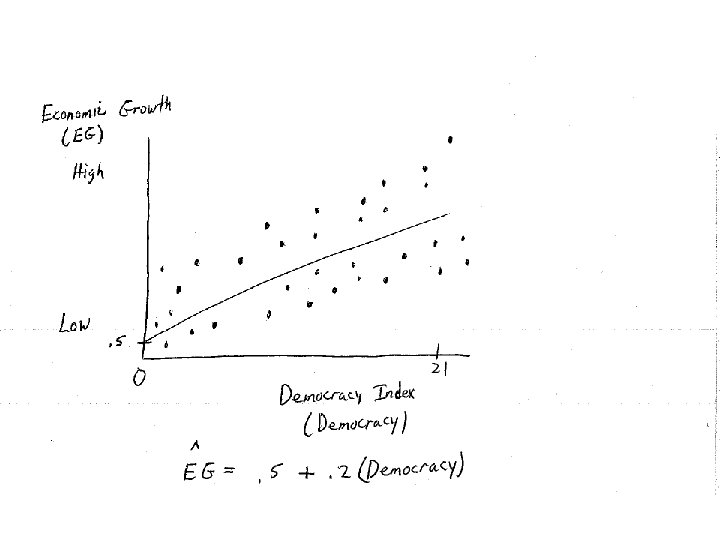 Economic Growth
(EG)
High
Low
.5
0
21
Democracy Index
(Democracy)
^
EG = .5 + .2 (Democracy)